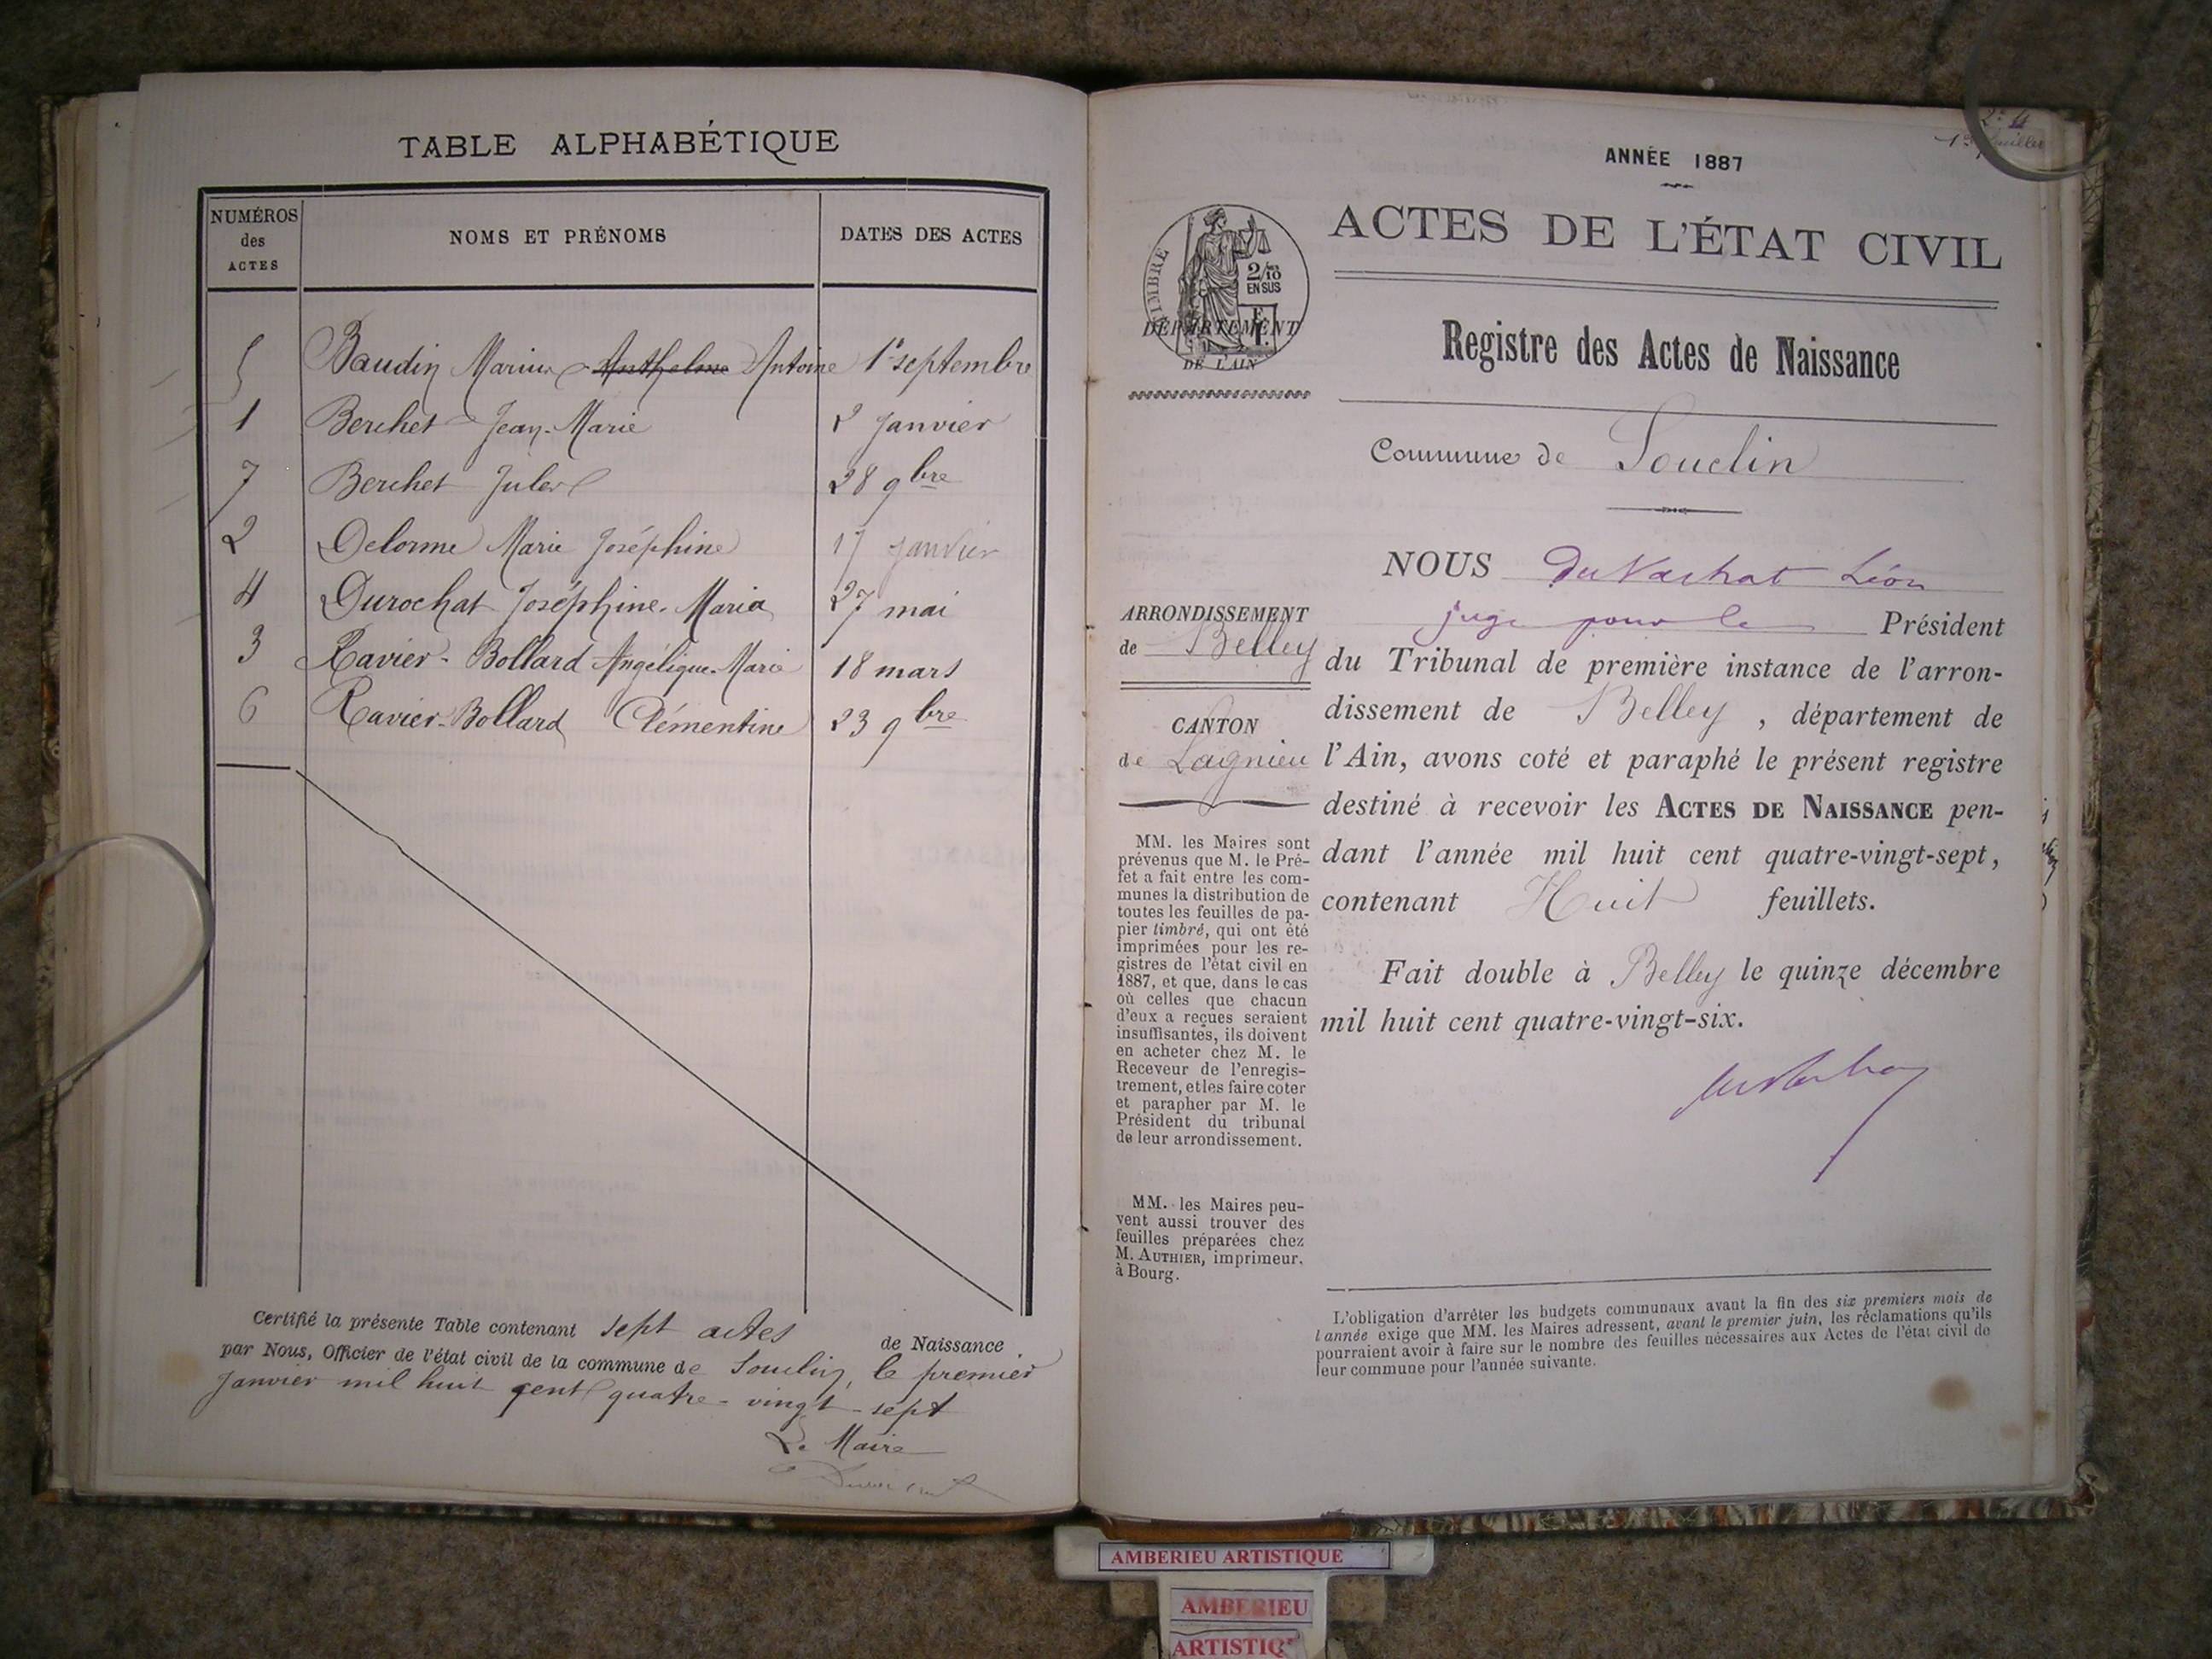 TABLE ALPHABÉTIQUE
NUMÉROS des ACTES
NOMS ET PRÉNOMS
DATES DES ACTES
5 Baudin Marius Anthelme Antoine 1er septembre
1 Berchet Jean-Marie 2 janvier
7 Berchet Jules 28 9bre
2 Delorme Marie Joséphine 17 janvier
4 Durochat Joséphine-Maria 27 mai
3 Ravier-Bollard Angélique-Marie 18 mars
6 Ravier-Bollard Clémentine 23 9bre
Certifié la présente Table contenant sept actes de Naissance
par Nous, Officier de l'état civil de la commune de Souclin, le premier
janvier mil huit cent quatre-vingt-sept
Le Maire
1er feuillet
ANNÉE 1887
ACTES DE L'ÉTAT CIVIL
TIMBRE
2/10 EN SUS
DÉPARTEMENT
DE L'AIN
Registre des Actes de Naissance
Commune de Souclin
ARRONDISSEMENT
de Belley
CANTON
de Lagnieu
MM. les Maires sont
prévenus que M. le Pré-
fet a fait entre les com-
munes la distribution de
toutes les feuilles de pa-
pier timbré, qui ont été
imprimées pour les re-
gistres de l'état civil en
1887, et que, dans le cas
où celles que chacun
d'eux a reçues seraient
insuffisantes, ils doivent
en acheter chez M. le
Receveur de l'enregis-
trement, et les faire coter
et parapher par M. le
Président du tribunal
de leur arrondissement.
MM. les Maires peu-
vent aussi trouver des
feuilles préparées chez
M. AUTHIER, imprimeur,
à Bourg.
NOUS Du Vachat Léon
juge pour le Président
du Tribunal de première instance de l'arron-
dissement de Belley, département de
l'Ain, avons coté et paraphé le présent registre
destiné à recevoir les ACTES DE NAISSANCE pen-
dant l'année mil huit cent quatre-vingt-sept,
contenant Huit feuillets.
Fait double à Belley le quinze décembre
mil huit cent quatre-vingt-six.
L'obligation d'arrêter les budgets communaux avant la fin des six premiers mois de
l'année exige que MM. les Maires adressent, avant le premier juin, les réclamations qu'ils
pourraient avoir à faire sur le nombre des feuilles nécessaires aux Actes de l'état civil de
leur commune pour l'année suivante.
AMBERIEU ARTISTIQUE
AMBERIEU
ARTISTIQ